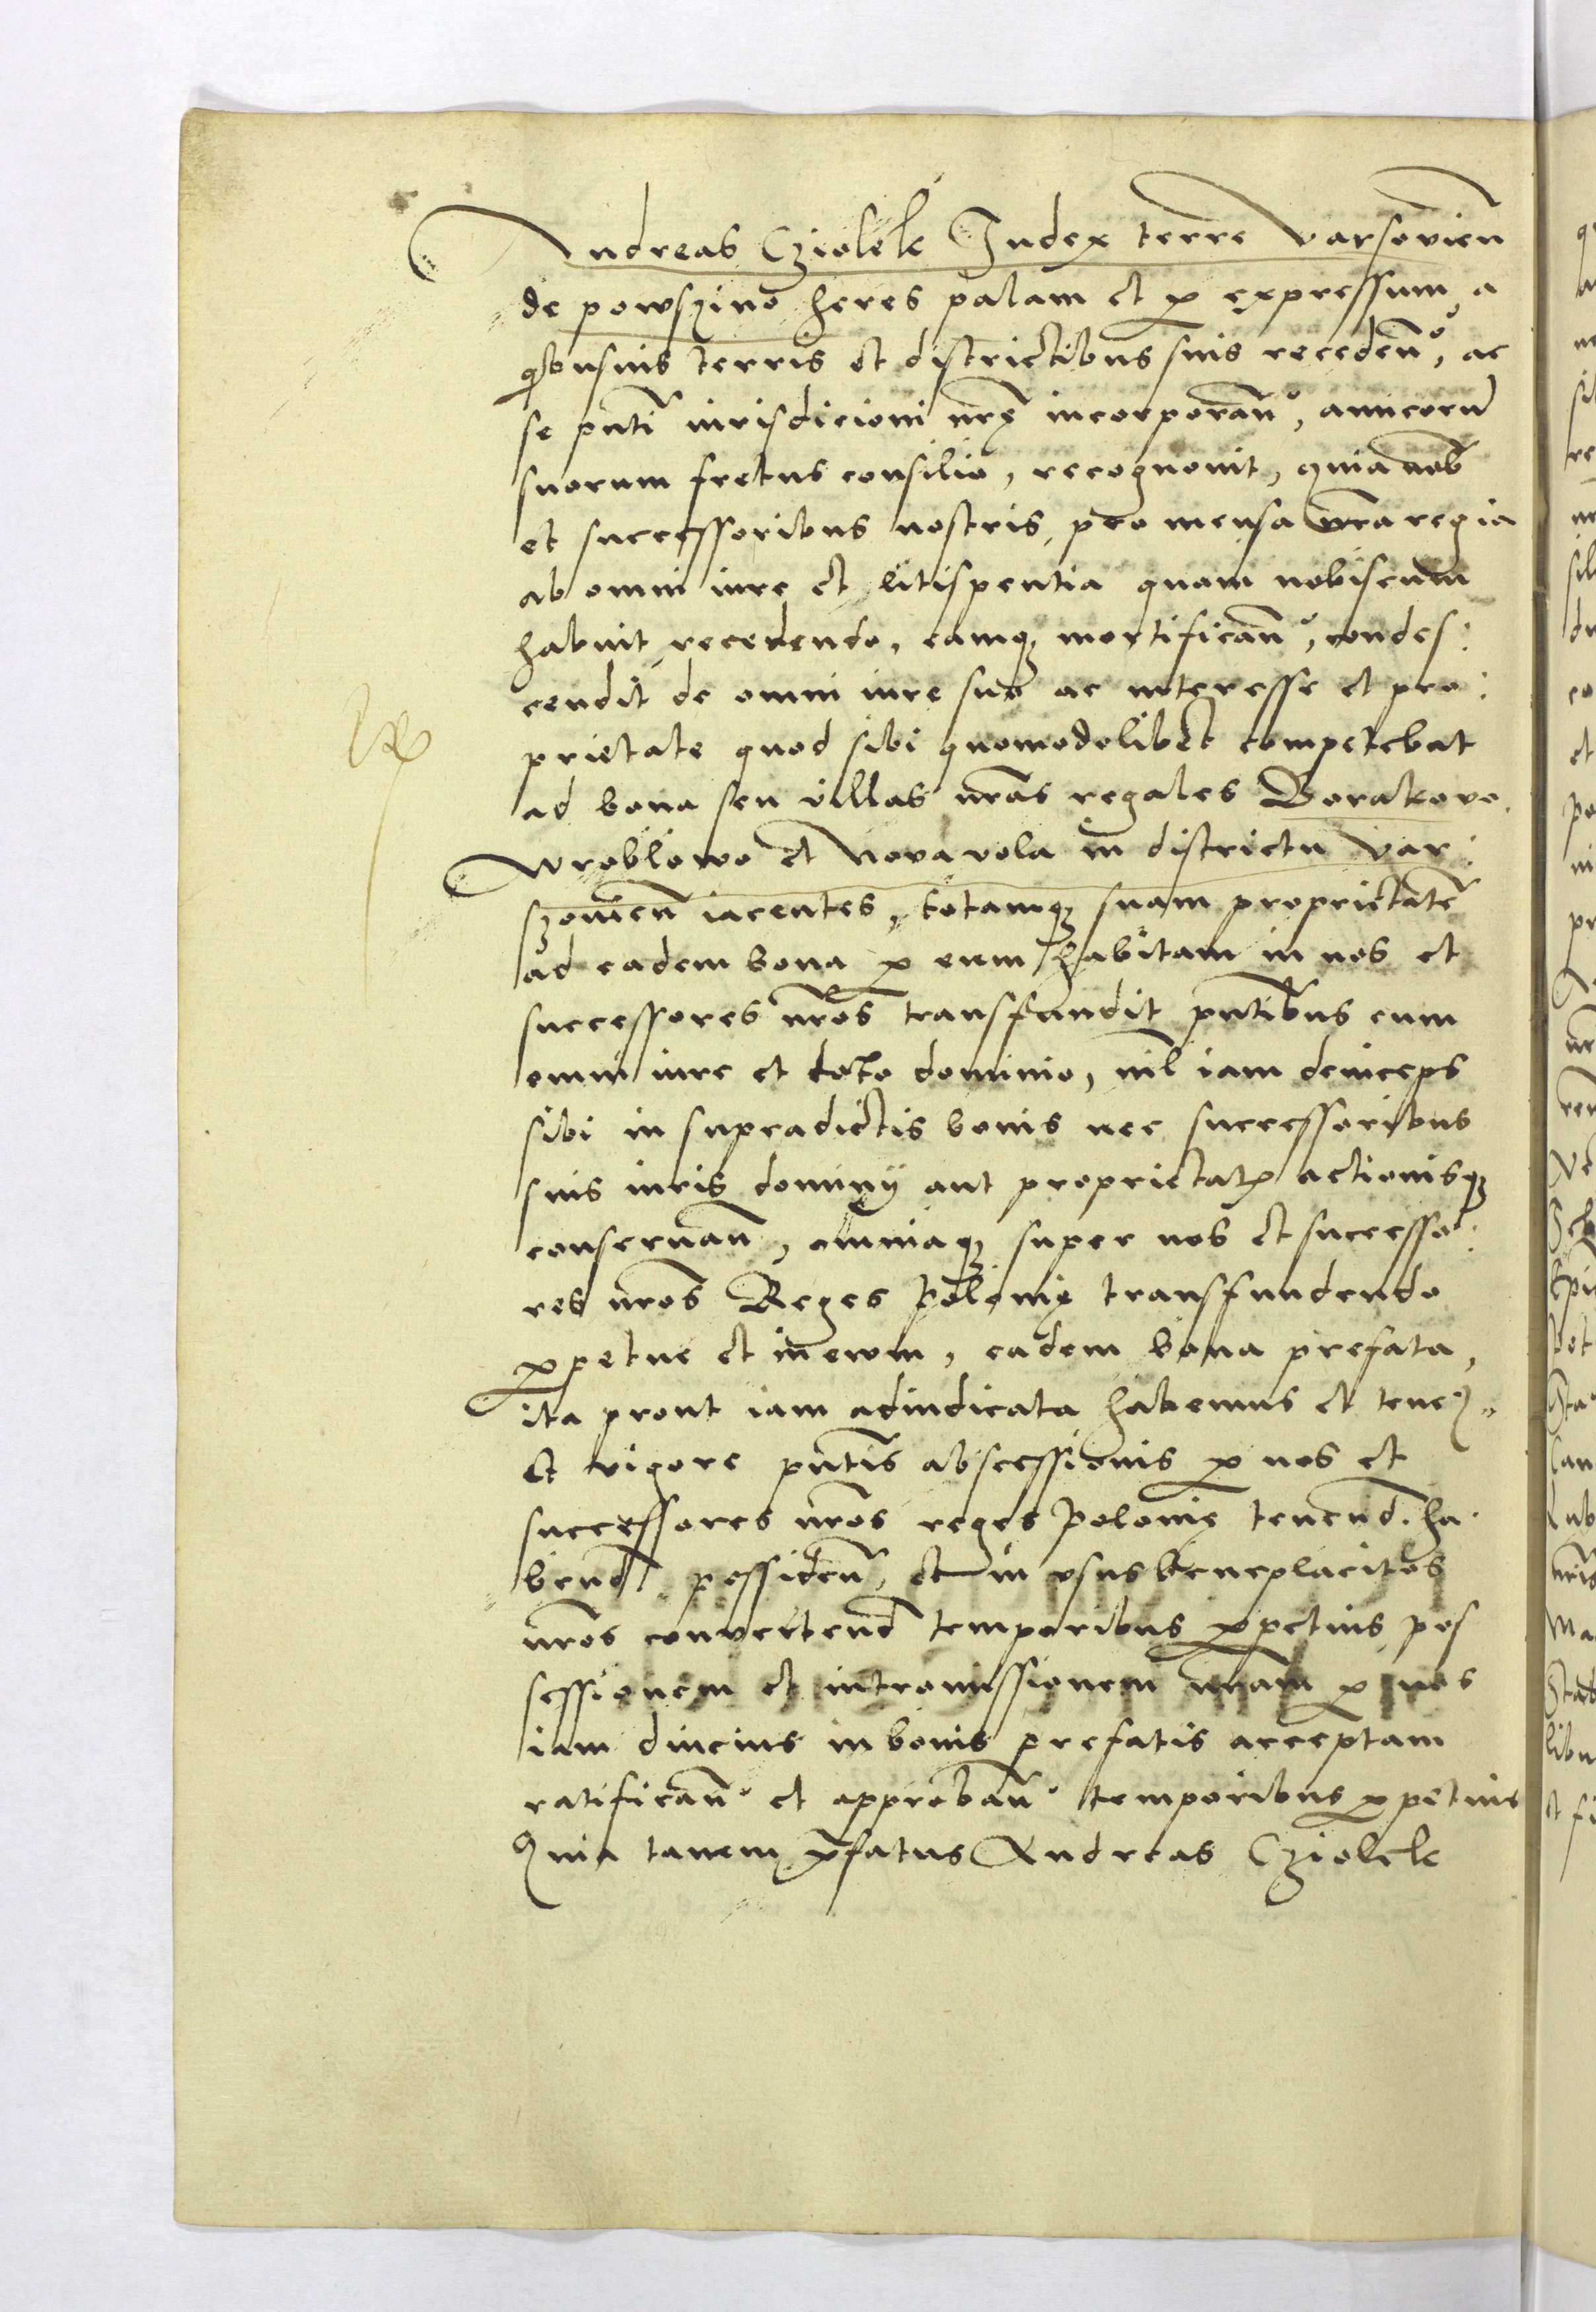 Andreas Cziolek Iudex terre varsovien̄
de powszino heres palam et ꝑ expressum a
qˢbusuis terris et districtibus suis receden̄º, ac
se pn̄ti iurisdicioni nr̄ę incorporan̄º, amicorū
suorum fretus consilio, recognouit, quia nob̄
et successoribus nostris, pro mensa nr̄a regia
ab omni iure et litispentia quam nobiscum
habuit recedendo, eamqꝫ mortifican̄º, condes:
cendit de omni iure suo ac interesse et pro:
prietate quod sibi quomodolibet competebat
ad bona seu villas nr̄as regales Borakovo.
Wroblowo et Novavola in districtu var:
szouien̄ iacentes, totamqꝫ suam proprietatē
ad eadem bona ꝑ eum habitam in nos et
successores nr̄os transfundit pn̄tibus cum
omni iure et toto dominio, nil iam deinceps
sibi in supradictis bonis nec successoribus
suis iuris dominy aut proprietatꝭ actionisqꝫ
conseruan̄, omniaqꝫ super nos et successo:
res nr̄os Reges Polonię transfundendo
ꝑpetue et in ewm, eadem bona prefata,
ita prout iam adiudicata habemus et teneꝫ
Et vigore pn̄tis abscessionis ꝑ nos et
successores nr̄os reges Polonię tenend̄. ha.
bend̄. possiden̄, et in vsus beneplacitos
nr̄os convertend̄ temporibus ꝑpetuis pos
sessionem et intromissionem nr̄am ꝑ nos
iam dincius in bonis prefatis acceptam
ratifican̄º et approban̄º temporibus ꝑpetuis
Quia tamem p̄fatus Andreas Cziolek